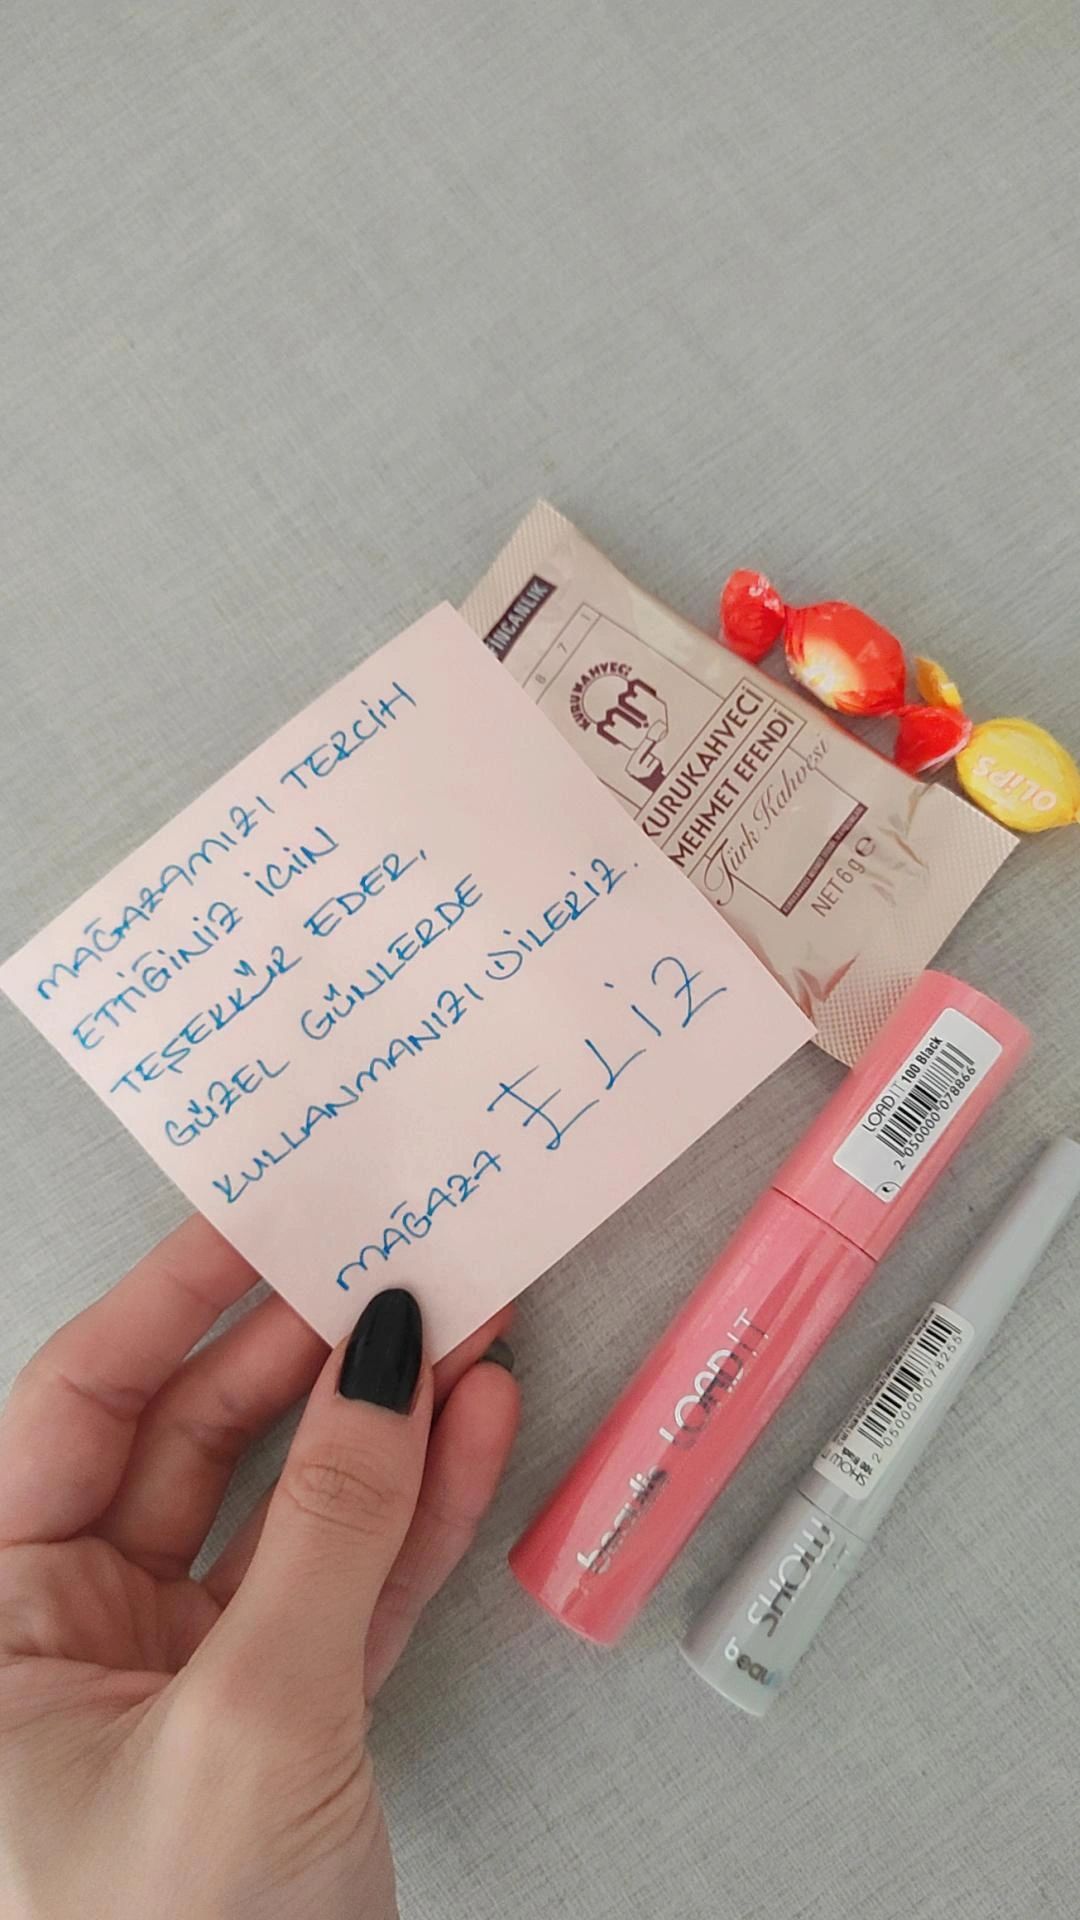 MAĞAZAMIZI TERCİH
ETTİĞİNİZ İÇİN
TEŞEKKÜR EDER,
GÜZEL GÜNLERDE
KULLANMANIZI DİLERİZ.
MAĞAZA ELİZ
FİNCANLIK
8 7 1
KURUKAHVECİ
KURUKAHVECİ
MEHMET EFENDİ
Türk Kahvesi
NET 6g e
OLiPS
LOAD IT 100 Black
2 050000 078866
LOAD IT
beaulis
2 050000 078255
SHOW IT
beau